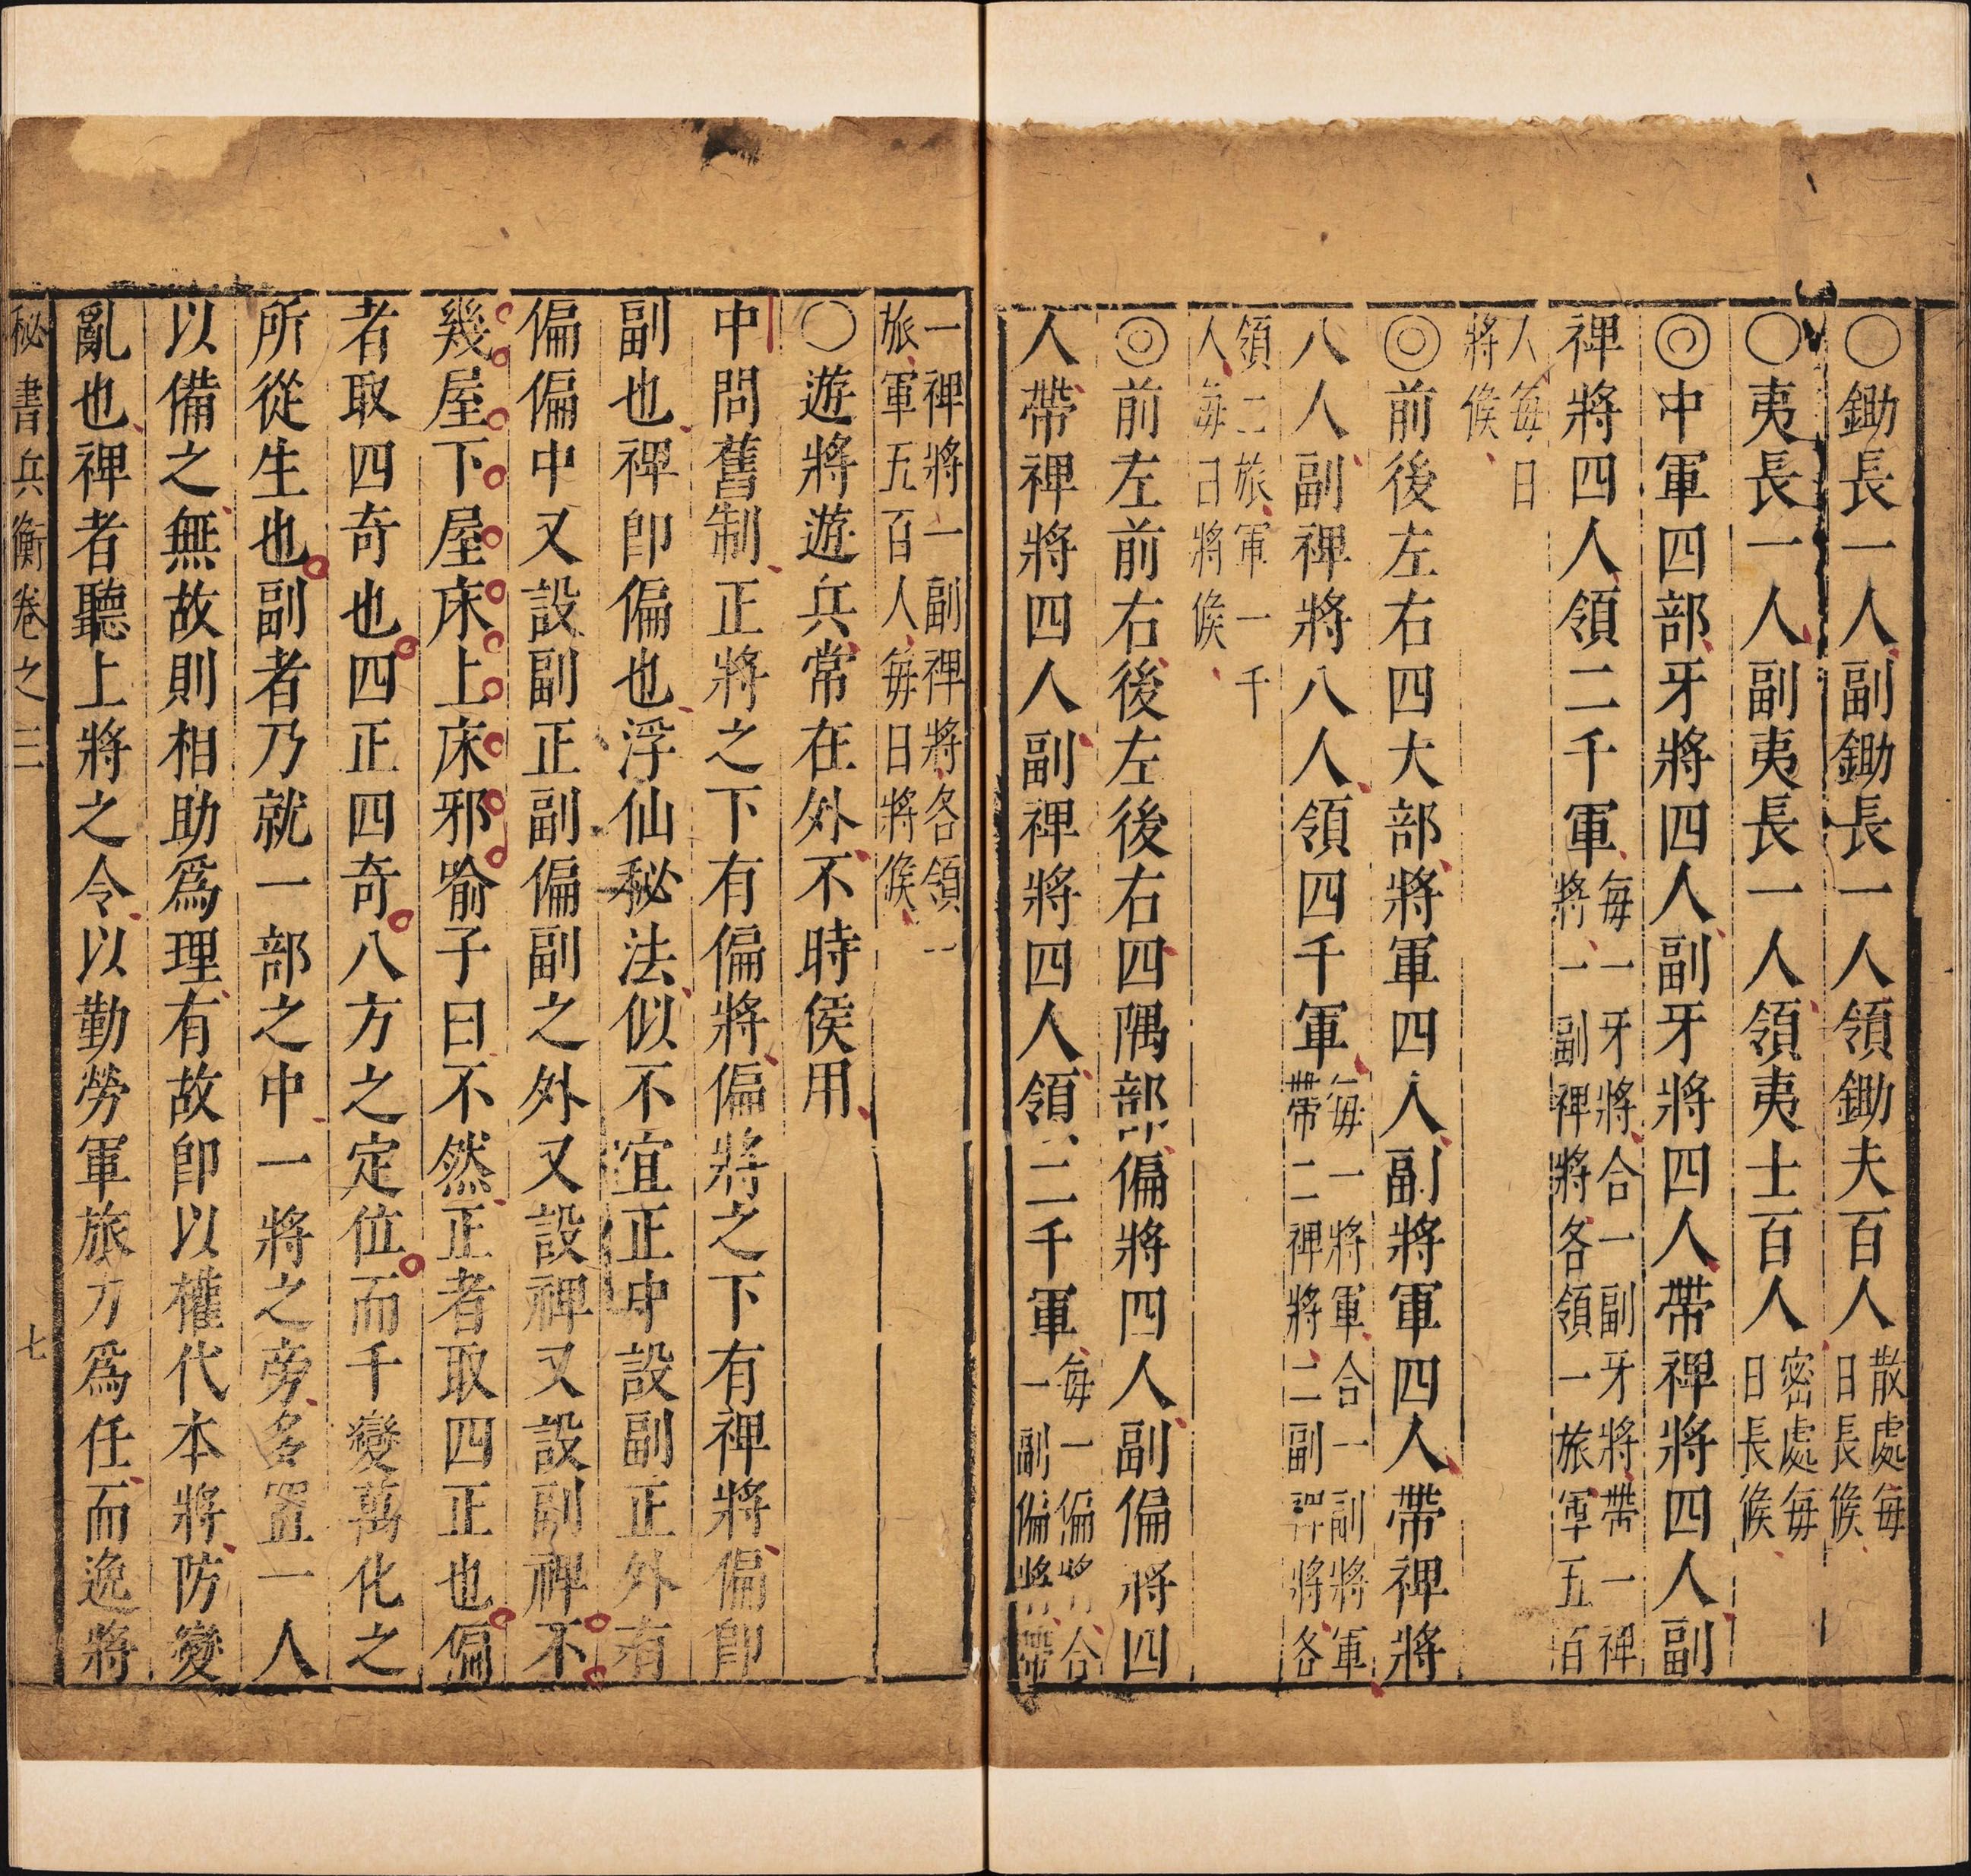 ○鋤長一人副鋤長一人領鋤夫百人散處每日長候
○夷長一人副夷長一人領夷士百人密處每日長候
◎中軍四部牙將四人副牙將四人帶裨將四人副
裨將四人領二千軍每一牙將合一副牙將帶一裨將一副裨將各領一旅軍五百
人每日將候
◎前後左右四大部將軍四人副將軍四人帶裨將
八人副裨將八人領四千軍每一將軍合一副將軍帶二裨將二副裨將各
領二旅軍一千人每日將候
◎前左前右後左後右四隅部偏將四人副偏將四
人帶裨將四人副裨將四人領二千軍每一偏將合一副偏將帶
一裨將一副裨將各領一旅軍五百人每日將候
○遊將遊兵常在外不時侯用
中問舊制正將之下有偏將偏將之下有裨將偏即
副也裨即偏也浮仙秘法似不宜正中設副正外有
偏偏中又設副正副偏副之外又設裨又設副裨不
幾屋下屋床上床邪喻子曰不然正者取四正也偏
者取四奇也四正四奇八方之定位而千變萬化之
所從生也副者乃就一部之中一將之旁多置一人
以備之無故則相助為理有故即以權代本將防變
亂也裨者聽上將之令以勤勞軍旅力為任而逸將
秘書兵衡卷之三 七